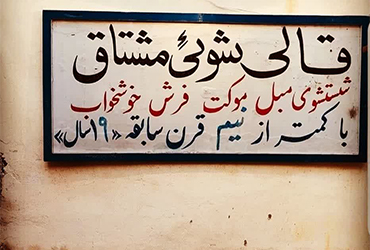 قالی شوئی مشتاق
شستشوی مبل موکت فرش خوشخواب
با کمتر از نیم قرن سابقه «۱۹سال»